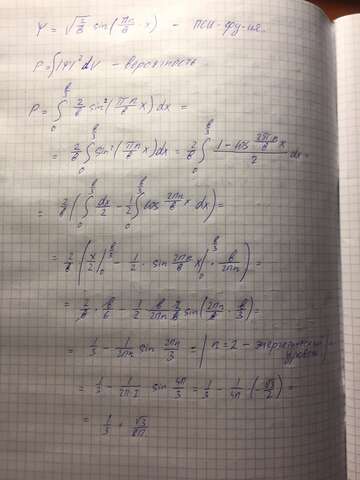 Ψ = √(2/ℓ) sin(πn/ℓ x) - пси-фу-ия.
P = ∫|Ψ|² dV - вероятность.
P = ∫₀^(ℓ/3) 2/ℓ sin²(πn/ℓ x) dx =
= 2/ℓ ∫₀^(ℓ/3) sin²(πn/ℓ x) dx = 2/ℓ ∫₀^(ℓ/3) (1 - cos 2πn/ℓ x)/2 dx =
= 2/ℓ (∫₀^(ℓ/3) dx/2 - 1/2 ∫₀^(ℓ/3) cos 2πn/ℓ x dx) =
= 2/ℓ (x/2 |₀^(ℓ/3) - 1/2 · sin 2πn/ℓ x |₀^(ℓ/3) · ℓ/2πn) =
= 2/ℓ · ℓ/6 - 1/2 ℓ/2πn 2/ℓ sin(2πn/ℓ · ℓ/3) =
= 1/3 - 1/2πn sin 2πn/3 = | n = 2 - энергетический уровень | =
= 1/3 - 1/2π·2 · sin 4π/3 = 1/3 - 1/4π · (-√3/2) =
= 1/3 + √3/8π